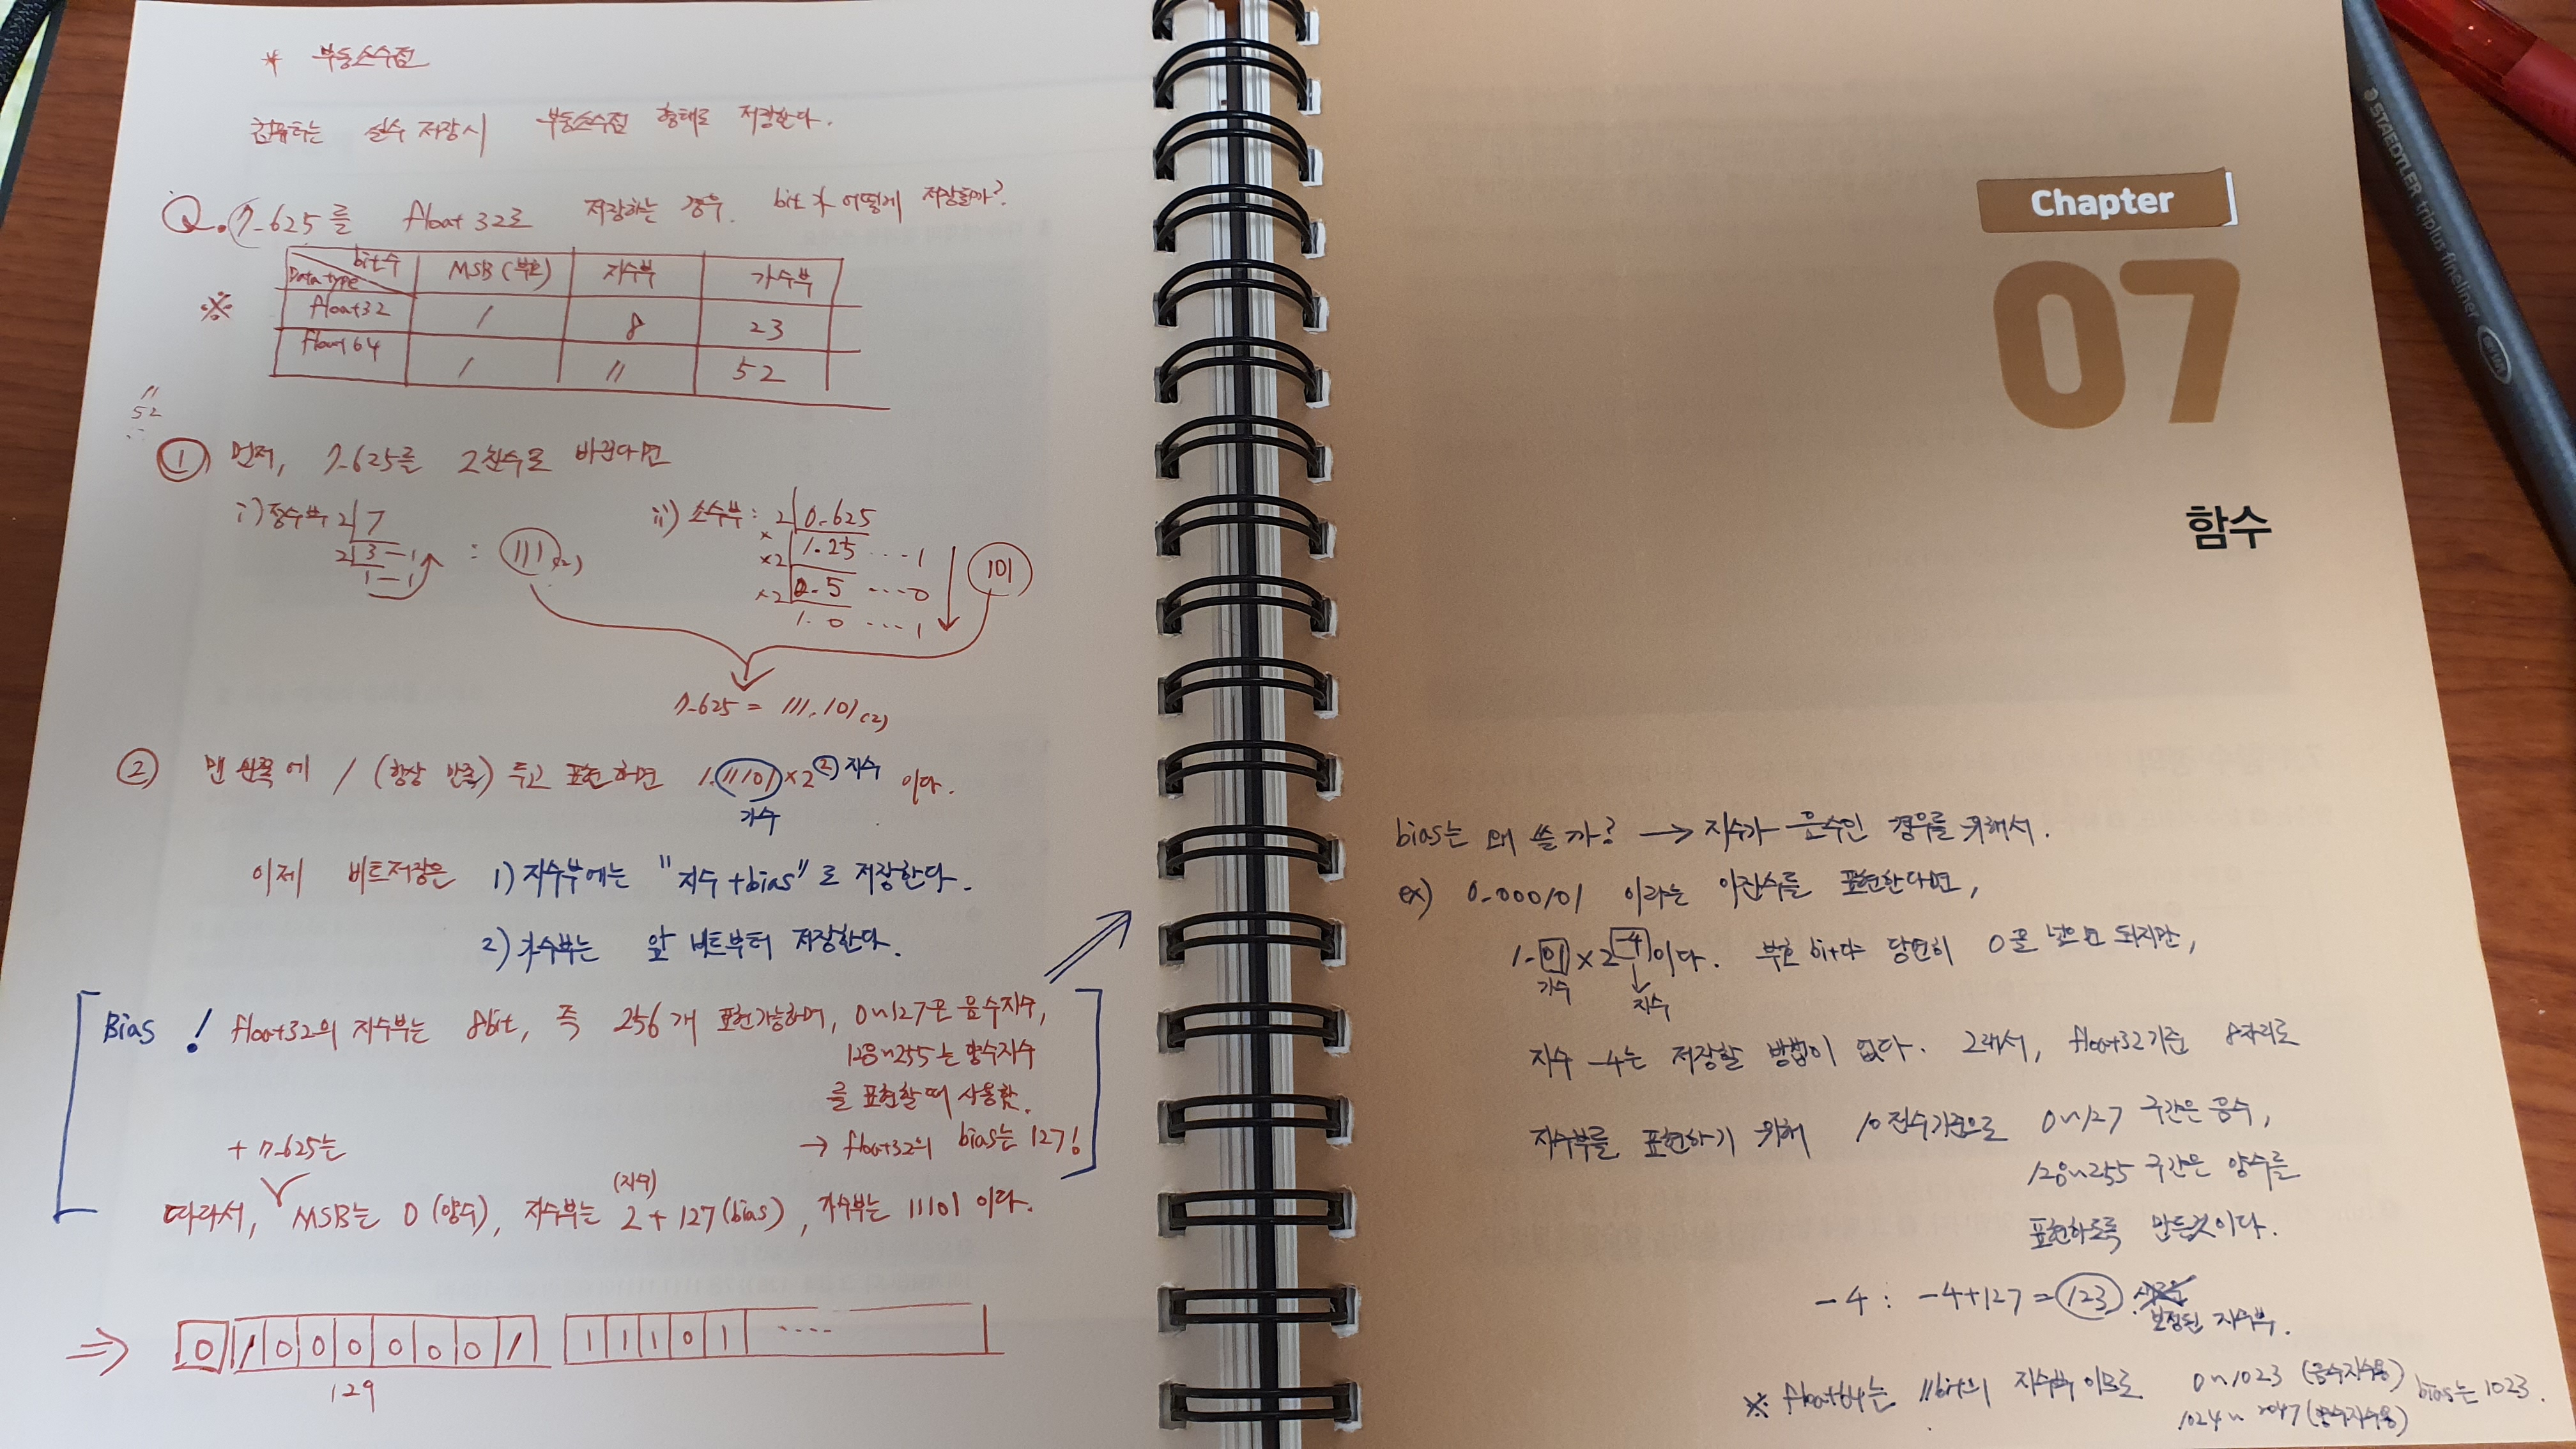 * 부동소수점
컴퓨터는 실수 저장시 부동소수점 형태로 저장한다.
Q. 7.625를 float 32로 저장하는 경우. bit가 어떻게 저장될까?
bit수 MSB (부호) 지수부 가수부
Data type
※ float32 1 8 23
float64 1 11 52
11
52
① 먼저, 7.625를 2진수로 바꾼다면
i) 정수부 2 7 ii) 소수부: 2 0.625
2 3 - 1 : 111(2) ×2 1.25 ---- 1 101
1 - 1 ×2 0.5 ---- 0
1.0 ---- 1
7.625 = 111.101(2)
② 맨 왼쪽에 1 (항상 만족) 두고 표현하면 1.11101×2² 지수 이다.
가수
이제 비트저장은 1) 지수부에는 "지수+bias"로 저장한다.
2) 가수부는 앞 비트부터 저장한다.
Bias ! float32의 지수부는 8bit, 즉 256개 표현가능하며, 0~127은 음수지수,
128~255는 양수지수
를 표현할때 사용함.
→ float32의 bias는 127!
+ 7.625는
(지수)
따라서, MSB는 0 (양수), 지수부는 2 + 127(bias), 가수부는 11101 이다.
⇒ 0 1 0 0 0 0 0 0 1 1 1 1 0 1 ----
129
Chapter
07
함수
bias는 왜 쓸까? → 지수가 음수인 경우를 위해서.
ex) 0.000101 이라는 이진수를 표현한다면,
1.01 × 2-4이다. 부호 bit는 당연히 0을 넣으면 되지만,
가수 지수
지수 -4는 저장할 방법이 없다. 그래서, float32기준 8자리로
지수부를 표현하기 위해 10진수기준으로 0~127 구간은 음수,
128~255 구간은 양수를
표현하도록 만든것이다.
-4 : -4+127 = 123
보정된 지수부.
※ float64는 11bit의 지수부 이므로 0~1023 (음수지수용) bias는 1023.
1024~2047 (양수지수용)
STAEDTLER triplus fineliner